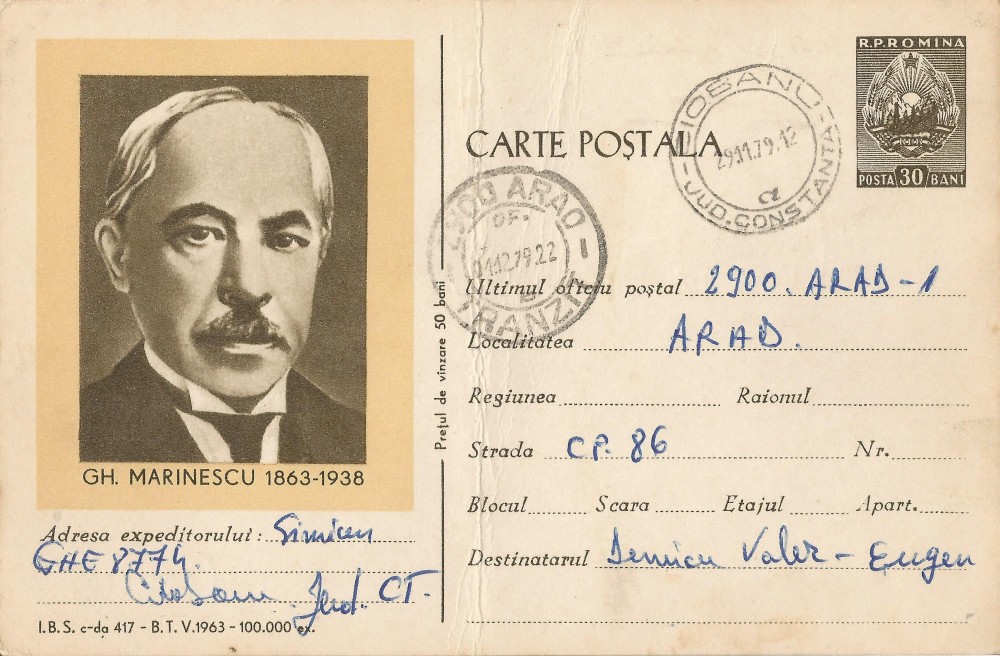 R.P.ROMINA
POSTA 30 BANI
CIOBANU
29.11.79.12
a
JUD. CONSTANTA
CARTE POȘTALA
2900 ARAD
OF.
01.12.79.22
TRANZIT
Ultimul oficiu poștal 2900. ARAD-1
Localitatea ARAD.
Regiunea Raionul
Strada CP. 86 Nr.
Blocul Scara Etajul Apart.
Destinatarul Demian Valer - Eugen
Prețul de vînzare 50 bani
GH. MARINESCU 1863-1938
Adresa expeditorului: Simicu
GHE 8774.
Jud. CT.
I.B.S. c-da 417 - B.T. V.1963 - 100.000 ex.